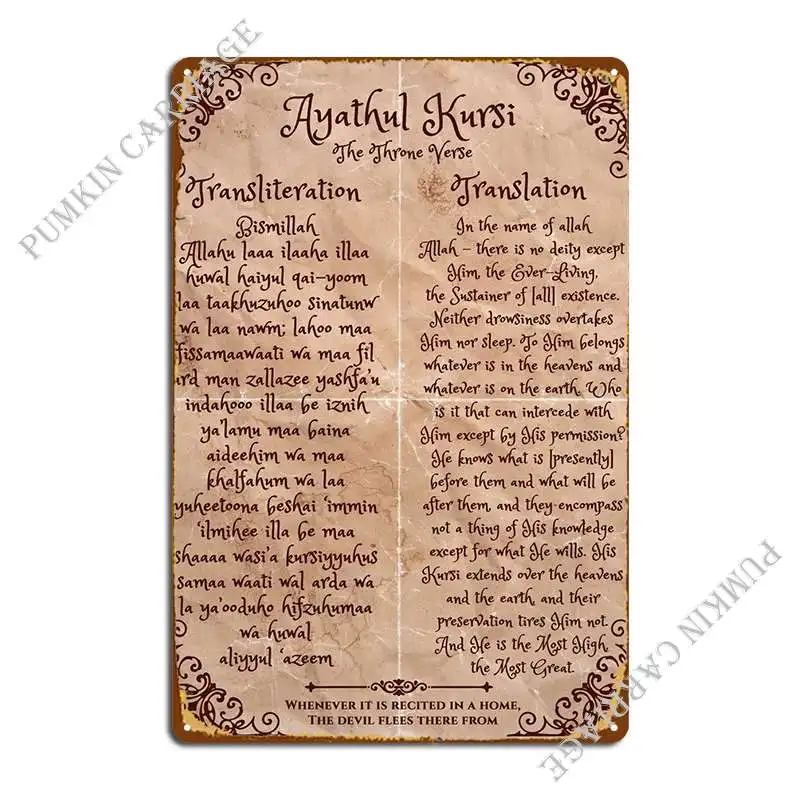 Ayathul Kursi
The Throne Verse
Transliteration
Bismillah
Allahu laaa ilaaha illaa
huwal haiyul qai-yoom
laa taakhuzuhoo sinatunw
wa laa nawm; lahoo maa
fissamaawaati wa maa fil
ard man zallazee yashfa'u
indahooo illaa be iznih
ya'lamu maa baina
aideehim wa maa
khalfahum wa laa
yuheetoona beshai 'immin
'ilmihee illa be maa
shaaaa wasi'a kursiyyuhus
samaa waati wal arda wa
la ya'ooduho hifzuhumaa
wa huwal
aliyyul 'azeem
Translation
In the name of allah
Allah – there is no deity except
Him, the Ever-Living,
the Sustainer of [all] existence.
Neither drowsiness overtakes
Him nor sleep. To Him belongs
whatever is in the heavens and
whatever is on the earth. Who
is it that can intercede with
Him except by His permission?
He knows what is [presently]
before them and what will be
after them, and they encompass
not a thing of His knowledge
except for what He wills. His
Kursi extends over the heavens
and the earth, and their
preservation tires Him not.
And He is the Most High,
the Most Great.
Whenever it is recited in a home,
The devil flees there from
PUMKIN CARRIAGE
PUMKIN CARRIAGE